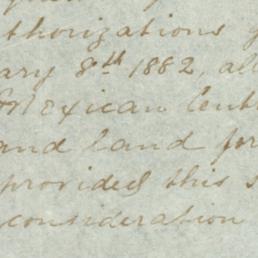 thorizations
ary 8th 1882, all
Mexican Cent
and land for
provided this s
consideration